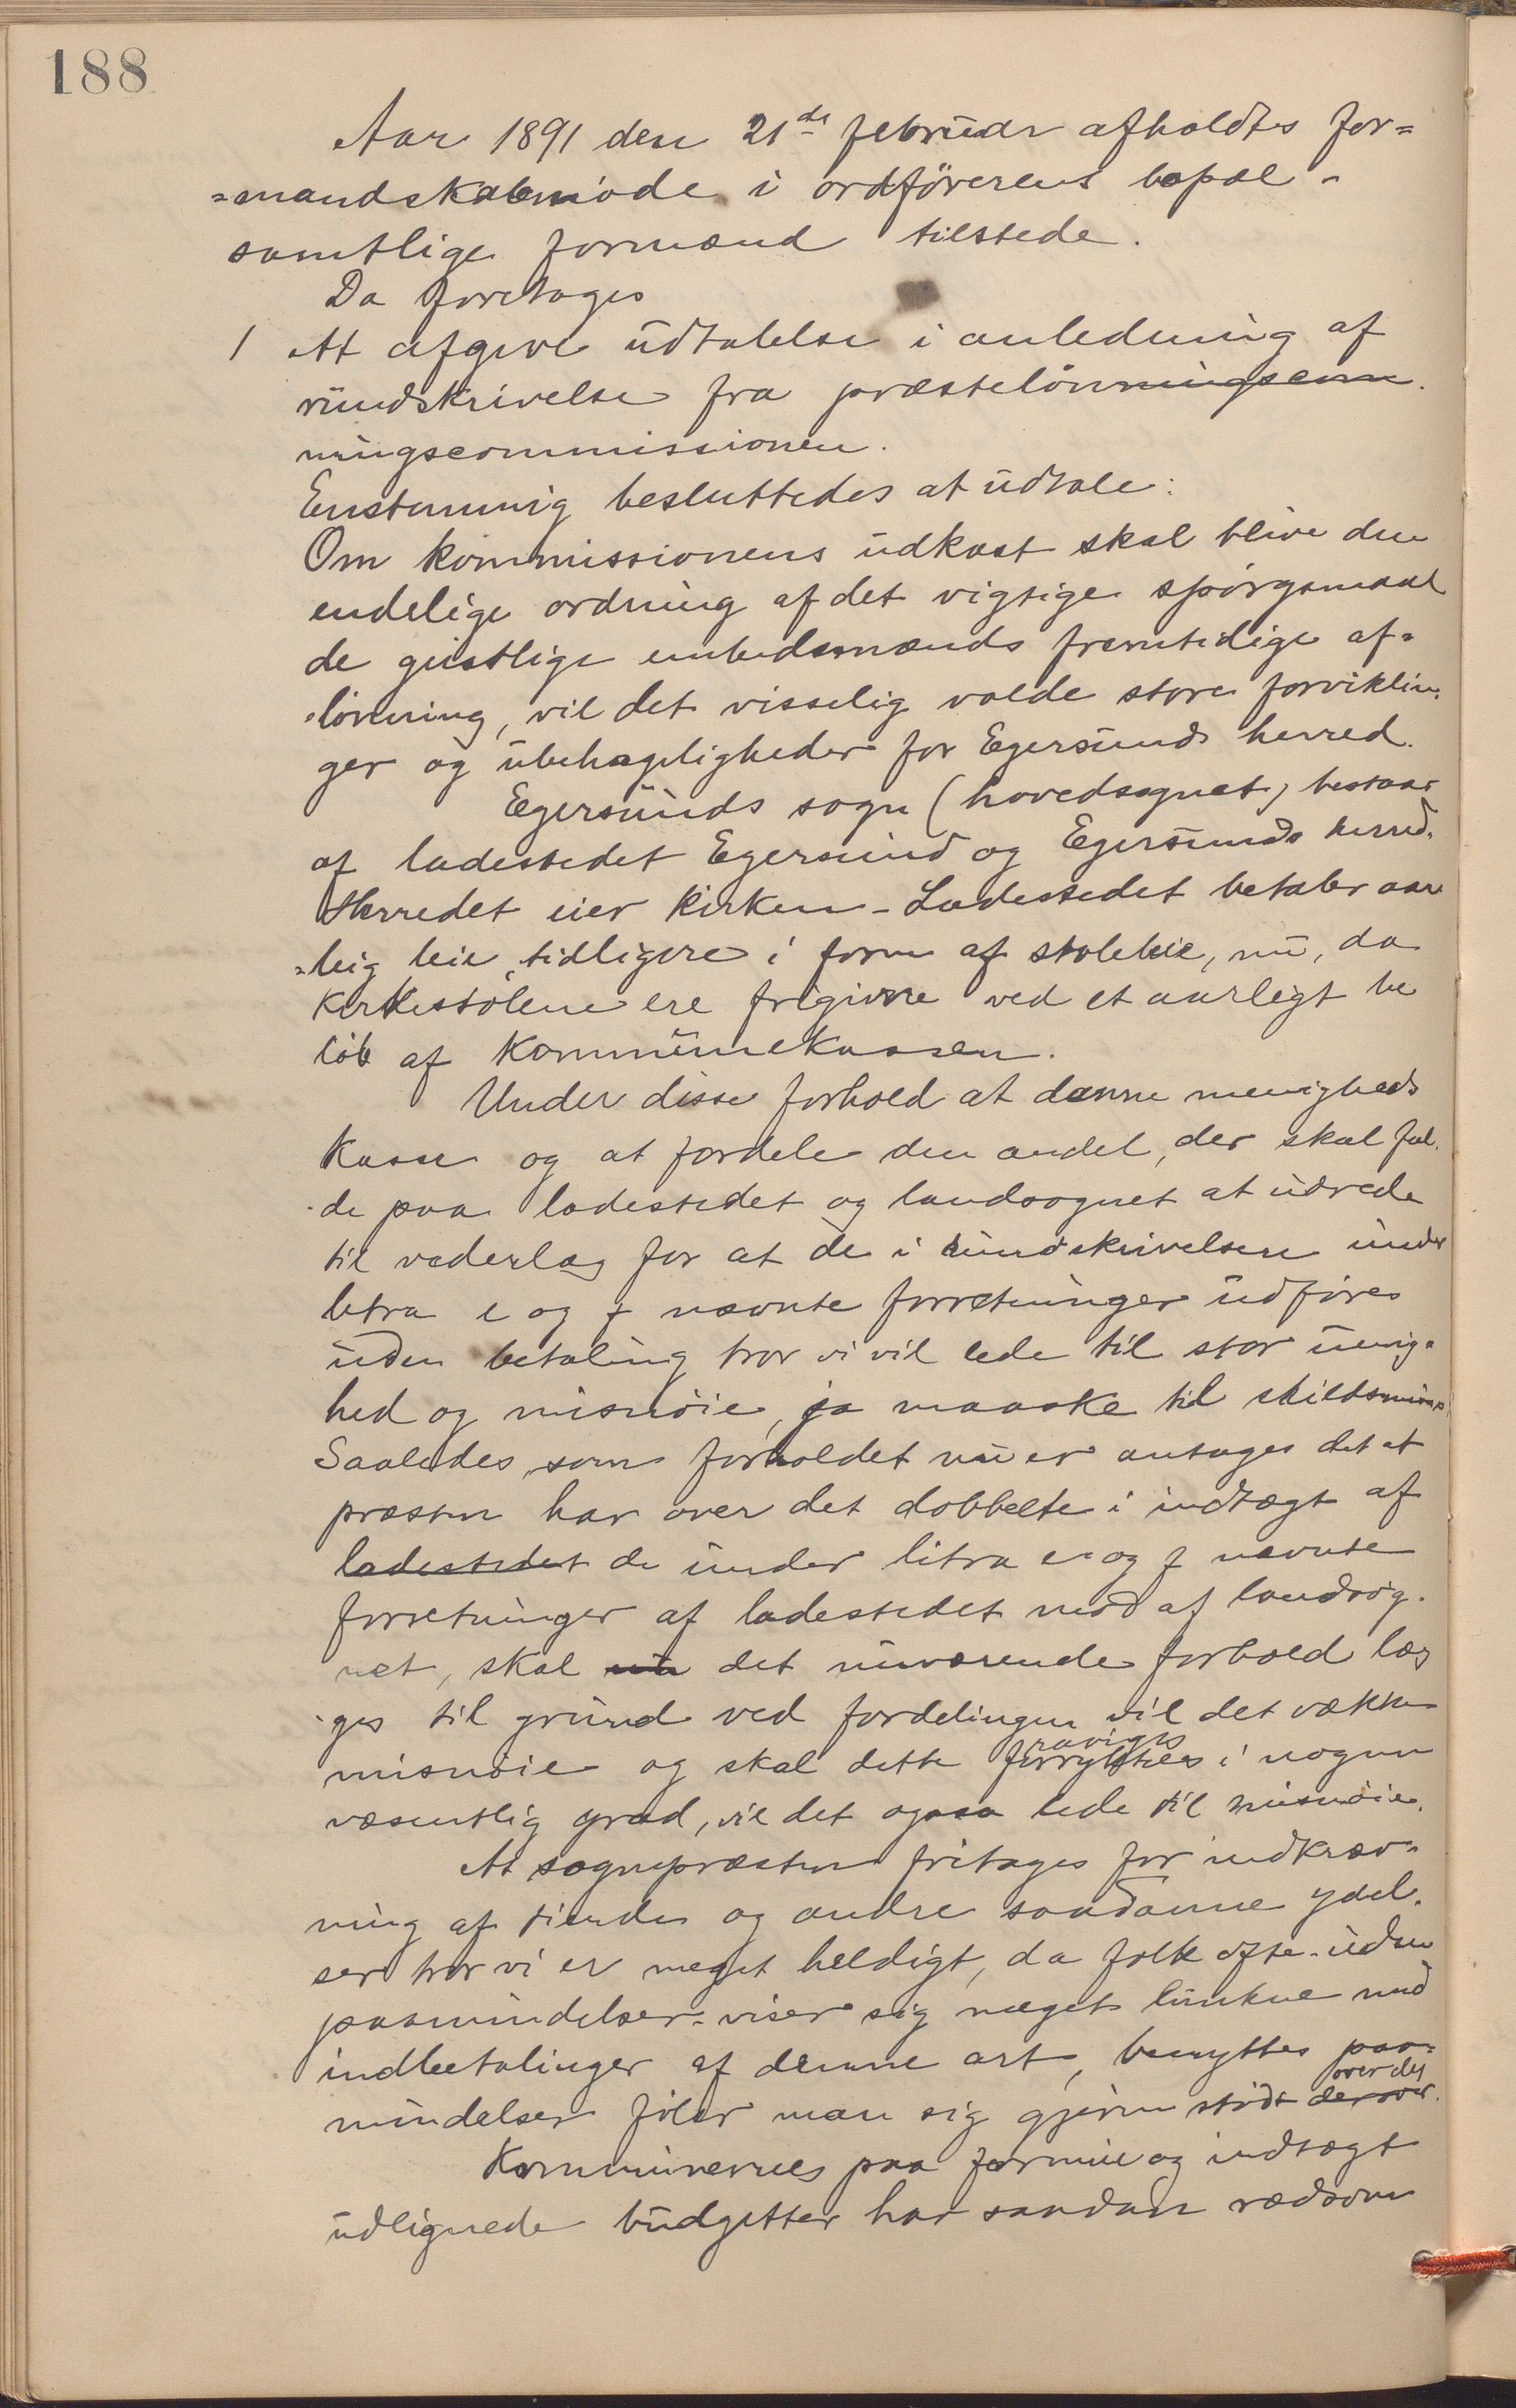 188
Aar 1891 den 21de februar afholdtes for=
=mandskabmöde i ordförerens bopæl -
samtlige formænd tilstede.
Da foretoges
1 At afgive udtalelse i anledning af
rundskrivelse fra præstelönningscom
ningscommissionen.
Enstemmig besluttedes at udtale:
Om kommissionens udkast skal blive den
endelige ordning af det vigtige spörgsmaal
de geistlige embedsmænds fremtidige af=
lönning, vil det visselig volde store forviklin
ger og ubehageligheder for Egersunds herred.
Egersunds sogn (hovedsognet) bestaar
af ladestedet Egersund og Egersunds herred.
Herredet eier kirken - Ladestedet betaler aar
=lig leie, tidligere i form af stoleleie, nu, da
kirkestolene ere frigivne ved et aarligt be
löb af kommunekassen.
Under disse forhold at danne menigheds
kasse og at fordele den andel, der skal fal
de paa ladestedet og landsognet at udrede
til vederlag for at de i rundskrivelsen under
litra e og f nævnte forretninger udföres
uden betaling tror vi vil lede til stor uenig=
hed og misnöie, ja maaske til skilsmisse,
Saaledes som forholdet nu er antages det at
præsten har over det dobbelte i indtægt af
ladestedet de under litra e og f nævnte
forretninger af ladestedet mod af landsog-
net, skal nu det nuværende forhold læg
ges til grund ved fordelingen vil det vække
misnöie og skal dette forrykkes i nogen
væsentlig grad, vil det ogsaa lede til misnöie.
At sognepræsten fritages for indkræv=
ning af tiende og andre saadanne ydel
ser tror vi er meget heldigt, da folk ofte uden
paamindelser viser sig meget lunkne med
indbetalinger af denne art, benyttes paa=
over det
mindelser föler man sig gjerne stödt derover.
Kommunernes paa formue og indtægt
udlignede budgetter har saadan rædsom